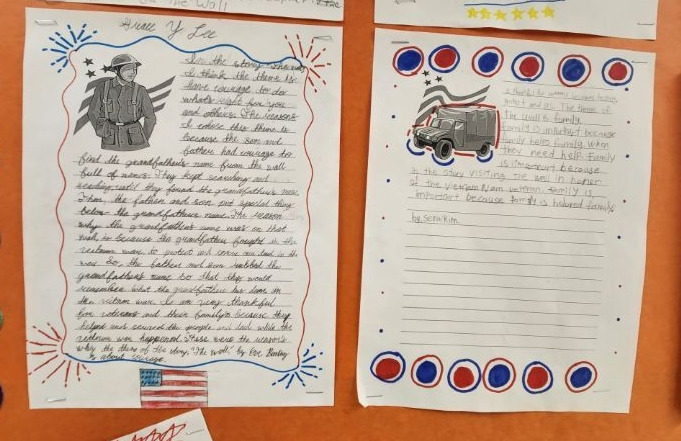 The Wall
Grace Y Lee
In the story "The wall"
I think the theme is
have courage to do
what's right for you
and others. The reasons
I chose this theme is
because the son and
father had courage to
find the grandfather's name from the wall
full of names. They kept searching and
searching until they found the grandfather's name
Then, the father and son put special thing
below the grandfathers name. The reason
why the grandfathers name was on that
wall is because the grandfather fought in the
vietnam war to protect and serve our land in the
war. So, the father and son rubbed the
grandfathers name so that they would
remember what the grandfather has done in
the vietnam war. I am very thankful
for veterans and their family's because they
helped and secured the people and land while the
vietnam war happened. These were the reason's
why the theme of the story, "The wall", by Eve Bunting
is about courage.
The theme of
the wall is family.
family is important because
family helps family when
they need help. family
is important because
in the story visiting the wall in honor
of the Vietnam veteran family is
important because family is honored family
by, Sena Kim